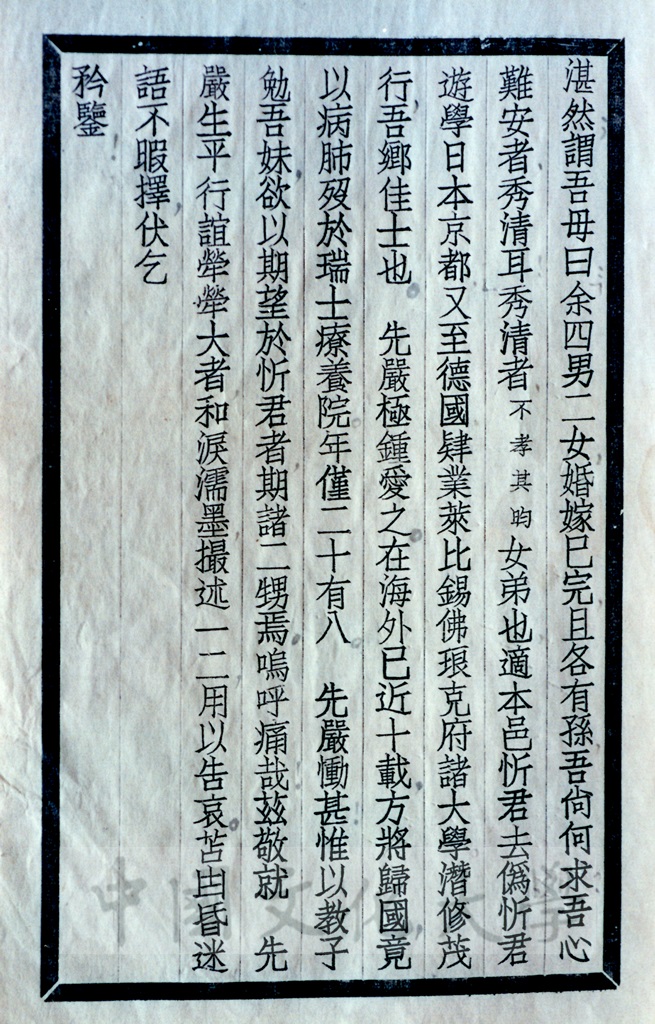 湛然謂吾毋曰余四男二女婚嫁已完且各有孫吾尙何求吾心
難安者秀清耳秀清者不孝其昀女弟也適本邑忻君去僞忻君
遊學日本京都又至德國肄業萊比錫佛琅克府諸大學潛修茂
行吾鄉佳士也　先嚴極鍾愛之在海外已近十載方將歸國竟
以病肺歿於瑞士療養院年僅二十有八　先嚴慟甚惟以教子
勉吾妹欲以期望於忻君者期諸二甥焉嗚呼痛哉茲敬就　先
嚴生平行誼犖犖大者和淚濡墨撮述一二用以告哀苫甴昏迷
語不暇擇伏乞
矜鑒
中国文化大學